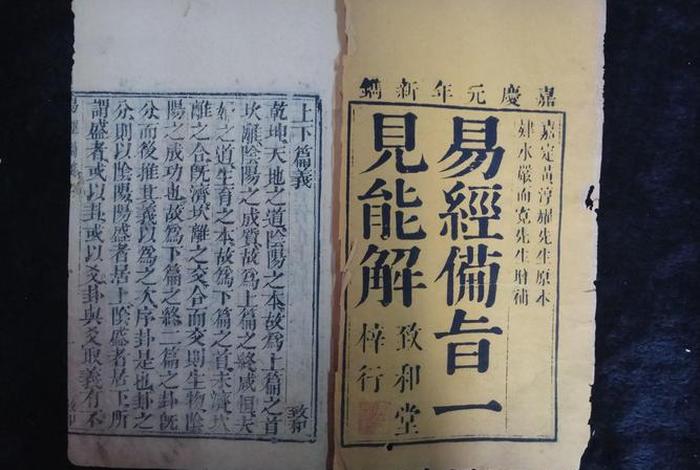 嘉慶元年新鐫
嘉定黃淳耀先生原本
建水嚴而寬先生增補
易經備旨一
見能解
致和堂
梓行
上下篇義
乾坤天地之道陰陽之本故爲上篇之首
坎離陰陽之成質故爲上篇之終咸恒夫
婦之道生育之本故爲下篇之首未濟坎
離之合既濟坎離之交合而交則生物陰
陽之成功也故爲下篇之終二篇之卦既
分而後推其義以爲之次序卦是也卦之
分則以陰陽陽盛者居上陰盛者居下所
謂盛者或以卦或以爻卦與爻取義有不
致和